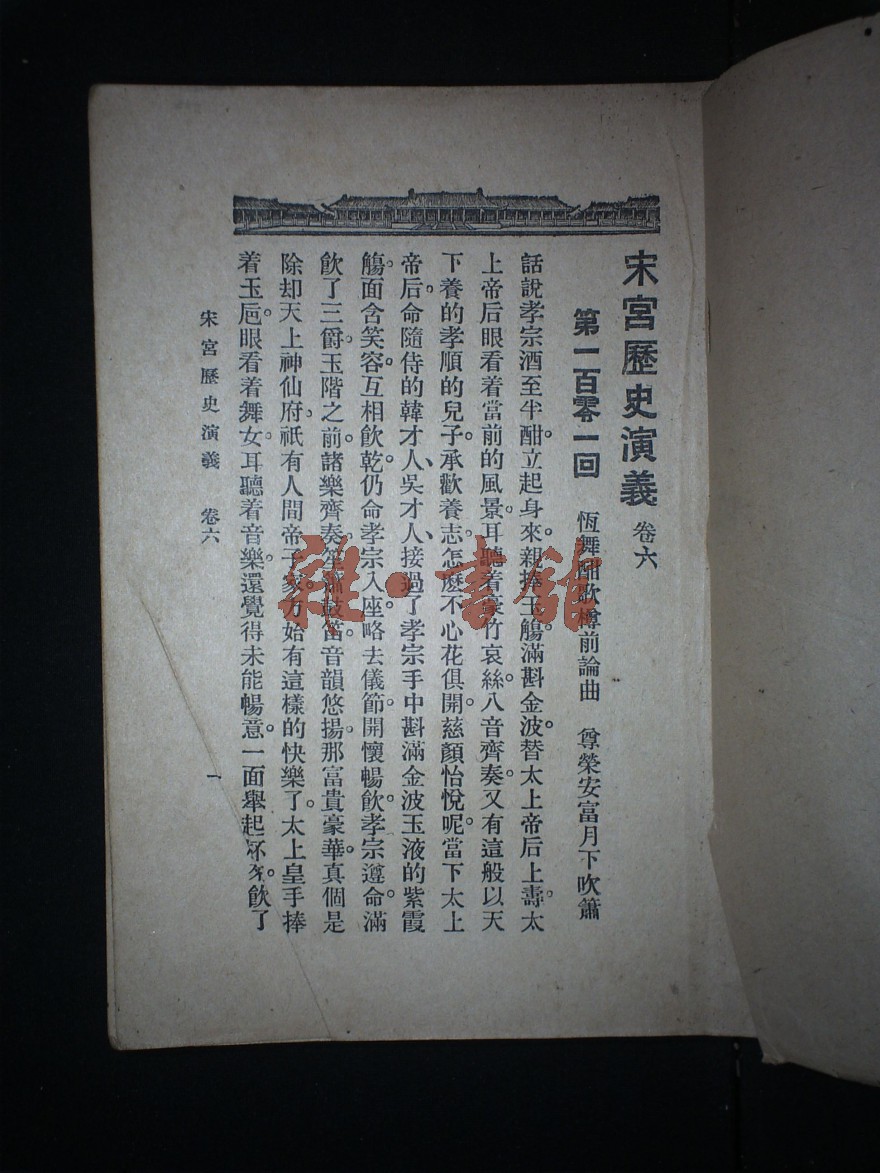 宋宮歷史演義 卷六
第一百零一回 恆舞酣歌樽前論曲 尊榮安富月下吹簫
話說孝宗酒至半酣。立起身來。親捧玉觴。滿斟金波。替太上帝后上壽。太
上帝后眼看着當前的風景。耳聽着豪竹哀絲。八音齊奏。又有這般以天
下養的孝順的兒子。承歡養志。怎麼不心花俱開。慈顏怡悅呢。當下太上
帝后。命隨侍的韓才人、吳才人、接過了孝宗手中斟滿金波玉液的紫霞
觴。面含笑容。互相飲乾。仍命孝宗入座。略去儀節。開懷暢飲。孝宗遵命。滿
飲了三爵。玉階之前。諸樂齊奏。笙簫鼓笛。音韻悠揚。那富貴豪華。真個是
除却天上神仙府、祇有人間帝子家。方始有這樣的快樂了。太上皇手捧
着玉卮。眼看着舞女。耳聽着音樂。還覺得未能暢意。一面舉起杯來。飲了
宋宮歷史演義 卷六
一
雜·書館